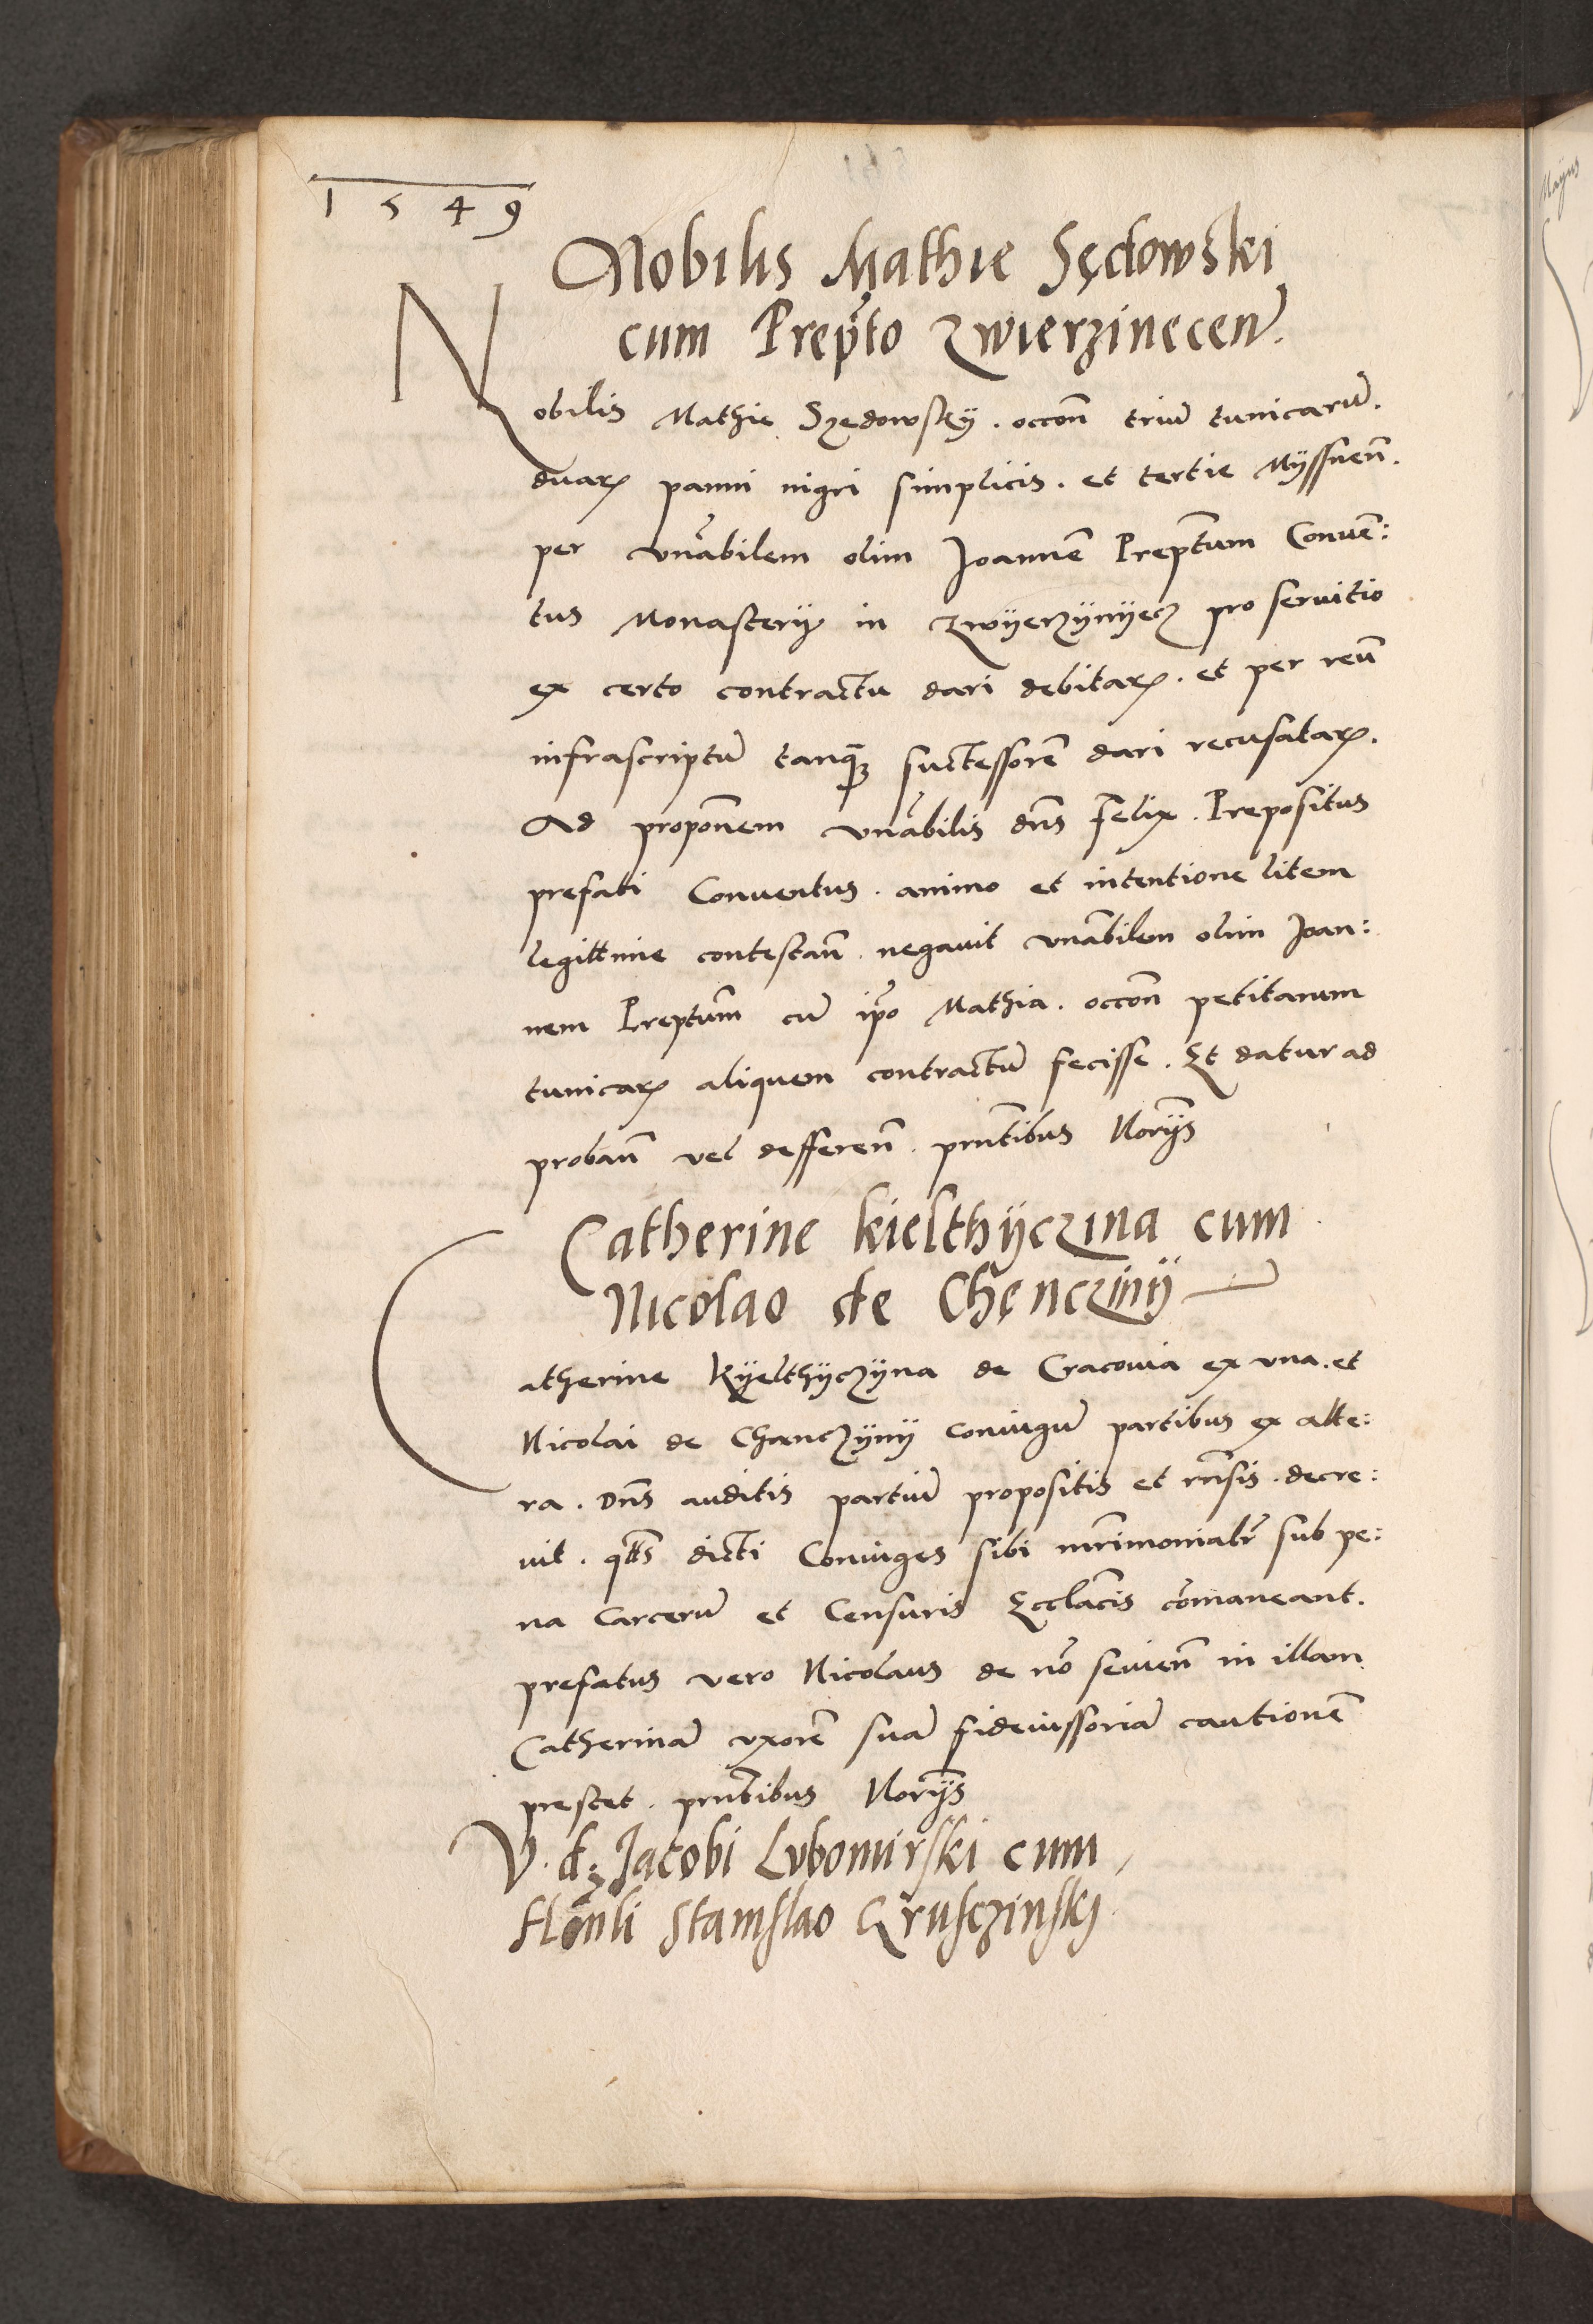 1549
Nobilis Mathie Sędowski
cum Prep̃to Zwierzinecen̄.
Nobilis Mathie Szędowsky. occon̄ triū tunicarū.
duaꝝ panni nigri simplicis. et tertie Myssnen̄.
per vn̄abilem olim Joannē Prep̄tum Conuē:
tus Monasterij in Zwyerzynyecz pro seruitio
ex certo contractu dari debitaꝝ. et per reū
infrascriptū tanq̄ȝ successorē dari recusataꝝ.
Ad propon̄em vn̄abilis dn̄s Felix. Prepositus
prefati Conuentus. animo et intentione litem
legittime contestan̄. negauit vn̄abilem olim Joan:
nem Prep̄tum cū ip̄o Mathia. occon̄ petitarum
tunicaꝝ aliquem contractū fecisse. Et datur ad
proban̄ vel defferen̄. prn̄tibus Norijs
Catherine kielthyczina cum
Nicolao de Chęncziny
Catherine Kyelthyczyna de Cracouia ex vna. et
Nicolai de Chanczyny coniugū partibus ex alte:
ra. Dn̄s auditis partiū propositis et rn̄sis. decre:
uit. q̄tts dicti Coniuges sibi mr̄imonialr̄ sub pe:
na carcerū et Censuris Eccl̄acis com̄aneant.
prefatus vero Nicolaus de no᷉ seuien̄ in illam
Catherinā vxorē suā fideiussoriā cautionē
prestet. prn̄tibus Norijs
V. d. Jacobi Lubomirski cum
Hon̄li Stanislao Krusczinskj